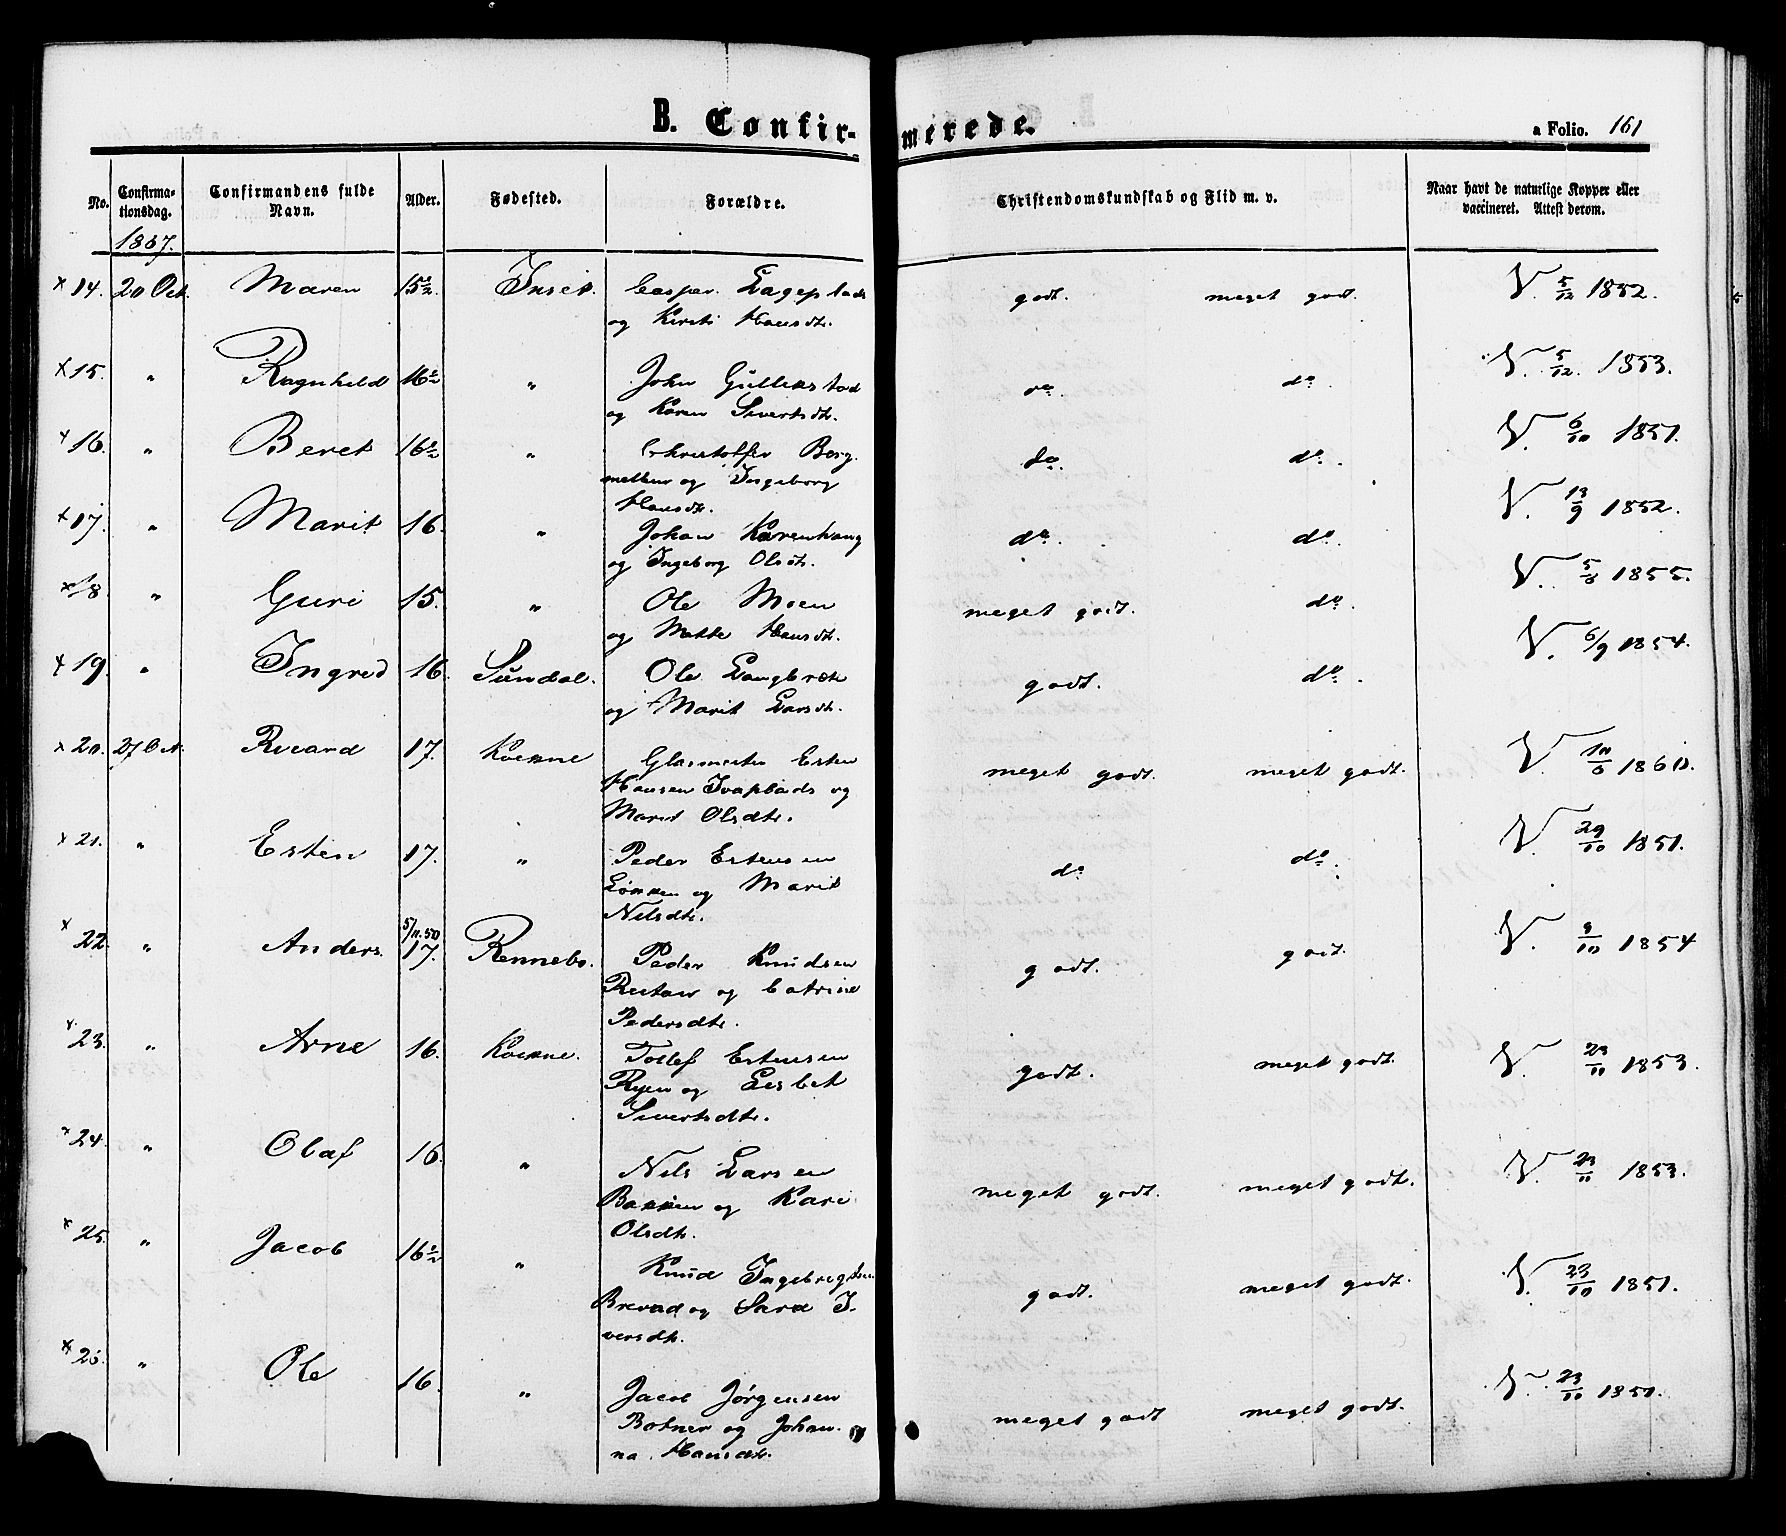 B. Confir- merede.
a Folio. 161
No. Confirma-tionsdag. Confirmandens fulde Navn. Alder. Fødested. Forældre. Christendomskundskab og Flid m. v. Naar havt de naturlige Kopper eller vaccineret. Attest derom.
1867.
x 14. 20 Oct. Maren 15½ Inset. Casper Lageplads godt. meget godt. V. 5/12 1852.
og Kirsti Hansdt.
x 15. " Ragnhild 16½ " John Gullikstad do. do. V. 5/12. 1853.
og Karen Sivertsdt.
x 16. " Beret 16½ " Christoffer Berg do. do. V. 6/10 1851.
mellem og Ingeborg
Hansdt.
x 17. " Marit 16. " Johan do. do. V. 13/9 1852.
og Ingeborg Olsdt.
x 18. " Guri 15. " Ole Moen meget godt. do. V. 5/8 1855.
og Mette Hansdt.
x 19. " Ingrid 16. Sundal. Ole godt. do. V. 6/9 1854.
og Marit Larsdt.
x 20. 27 Oct. 17. Kvikne Glasmester Esten meget godt. meget godt. V. 1860.
Hansen og
Marit Olsdtr.
x 21. " Esten 17. " Peder Estensen do do. V. 29/10 1851.
Løkken og Marit
Nilsdtr.
x 22. " Anders. 5/11.50 17. Rennebo. Peder Knudsen godt. godt. V. 9/10 1854
og Catrine
Pedersdtr.
x 23. " Arne 16. Kvikne. Tollef Estensen godt. meget godt. V. 23/11 1853.
Ryen og Lisbet
Sivertsdtr.
x 24. " Olaf 16. " Nils Larsen meget godt. meget godt. V. 23/11 1853.
Bakken og Kari
Olsdtr.
x 25. " Jacob 16½ " Knud Ingebrigtsen godt. meget godt. V. 23/10 1851.
og Sara I-
versdtr.
x 26. " Ole 16. " Jacob Jørgensen meget godt meget godt. V. 23/10 1851.
Botner og Johan-
na Hansdtr.